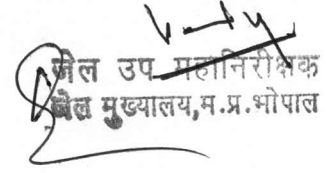 जेल उप महानिरीक्षक
जेल मुख्यालय,म.प्र.भोपाल